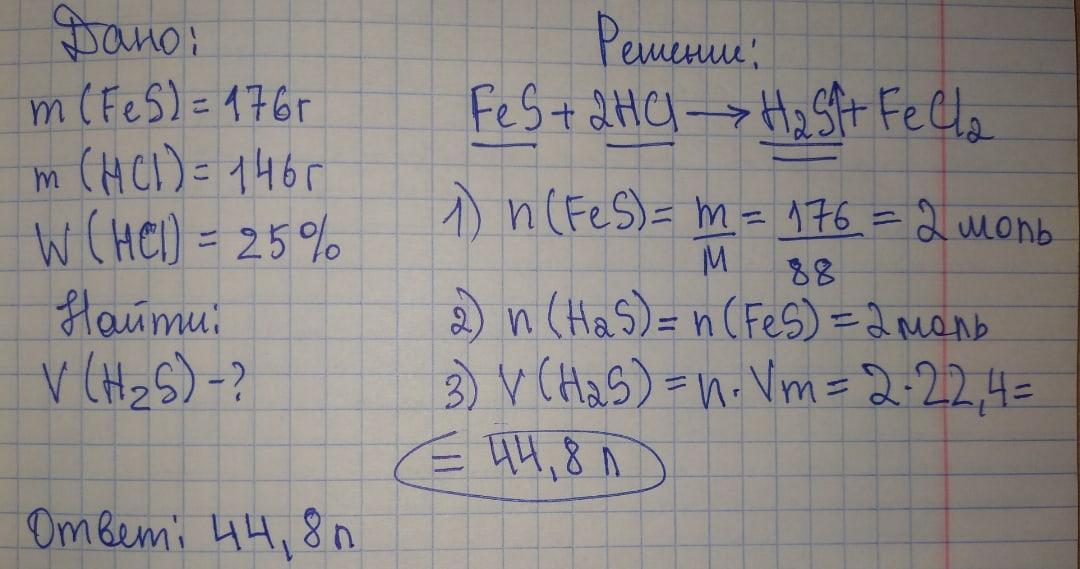 Дано:
m (FeS) = 176г
m (HCl) = 146г
W (HCl) = 25%
Найти:
V (H₂S) - ?
Решение:
FeS + 2HCl → H₂S↑ + FeCl₂
1) n (FeS) = m/M = 176/88 = 2 моль
2) n (H₂S) = n (FeS) = 2 моль
3) V (H₂S) = n · Vm = 2 · 22,4 =
= 44,8 л
Ответ: 44,8 л